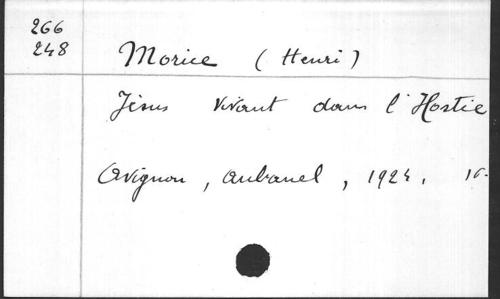 266
248
Morice (Henri)
Jésus vivant dans l'Hostie
Avignon, Aubanel, 1924, 16.